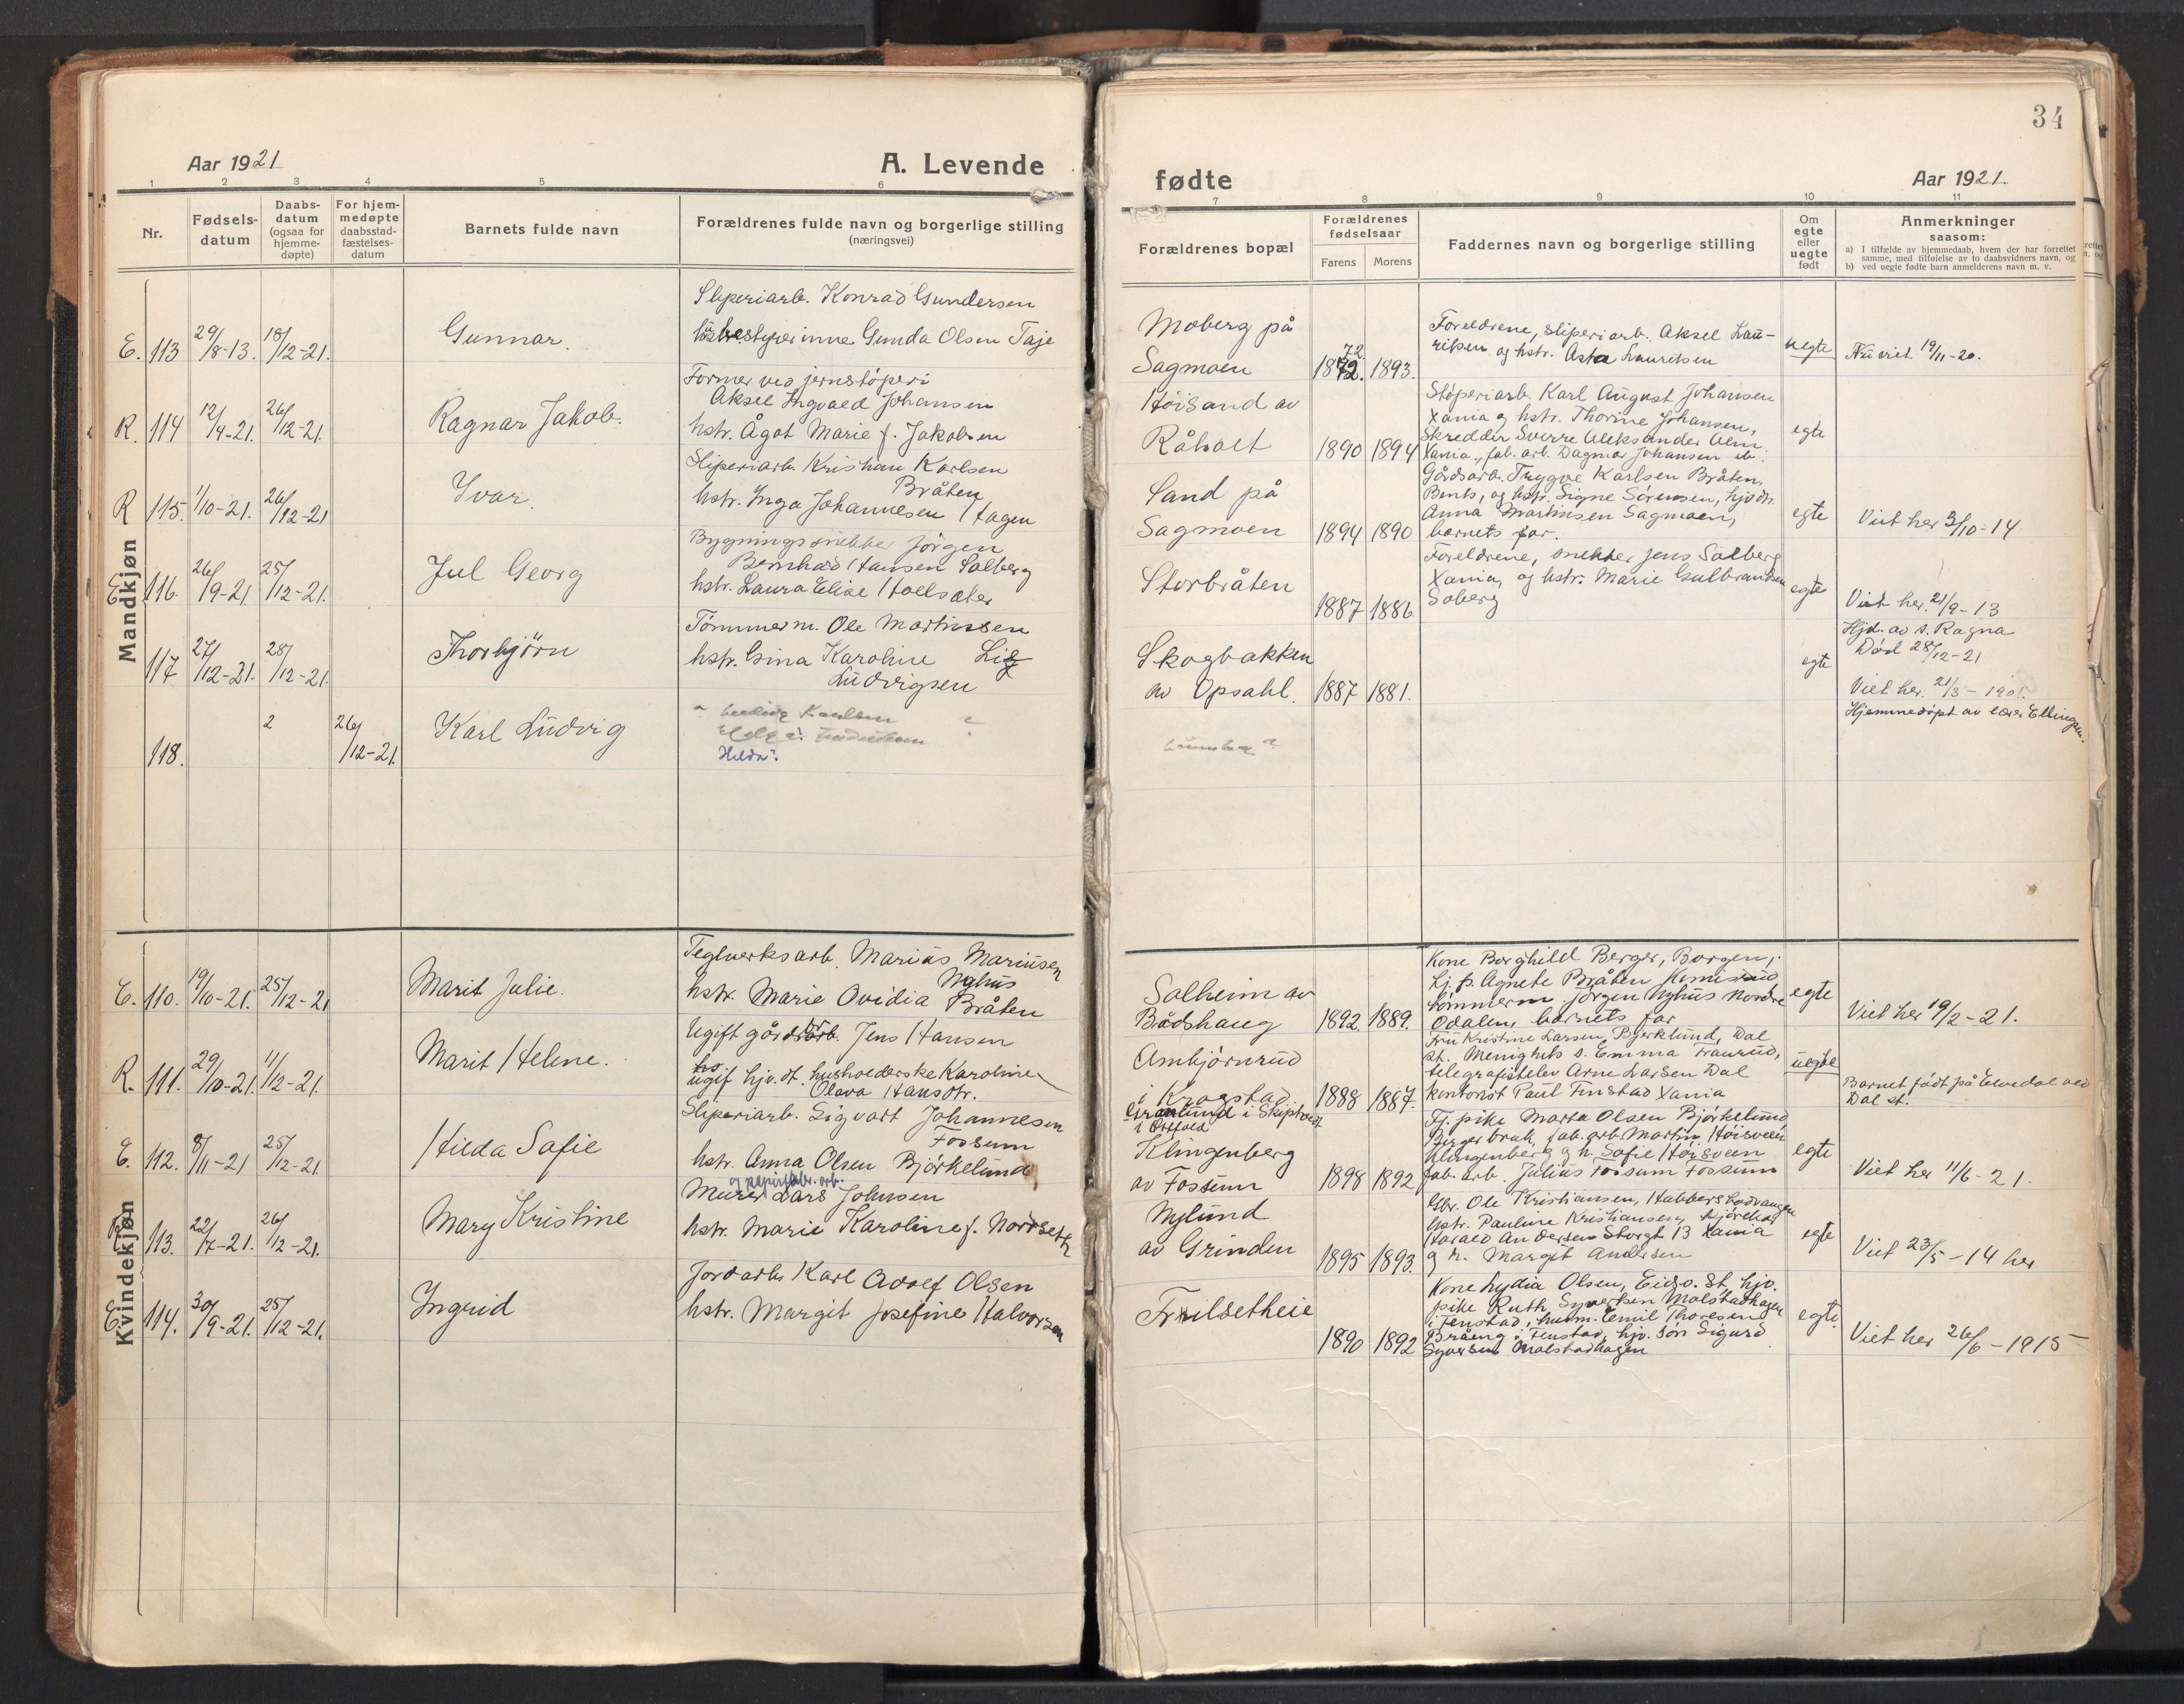 34
Aar 1921
A. Levende
1 2 3 4 5 6
Nr.
Fødsels-
datum
Daabs-
datum
(ogsaa for
hjemme-
døpte)
For hjem-
medøpte
daabsstad-
fæstelses-
datum
Barnets fulde navn
Forældrenes fulde navn og borgerlige stilling
(næringsvei)
Mandkjøn
Sliperiarb. Konrad Gundersen
E. 113 29/8-13. 18/12-21. Gunnar. husbestyrerinne Gunda Olsen Taje
Former ved jernstøperi
Aksel Ingvald Johansen
R. 114 12/4-21. 26/12-21. Ragnar Jakob. hstr. Ågot Marie f. Jakobsen
Sliperiarb. Kristian Karlsen
Bråten
R 115. 1/10-21. 26/12-21 Ivar. hstr. Inga Johannesen Hagen
Bygningssnekker Jørgen
Bernhard Hansen Solberg
E. 116. 26/9-21. 25/12-21. Jul Georg hstr. Laura Elise Hoelsæter
Tømmerm. Ole Martinssen
Lie
117 27/12-21. 28/12-21. Thorbjørn hstr. Gina Karoline
Ludvigsen
118. 2 26/12-21. Karl Ludvig
Karlsen ?
Hilda?
Kvindekjøn
Teglverksarb. Marius Mariusen
Nyhus
E. 110. 19/10-21. 25/12-21 Marit Julie. hstr. Marie Ovidia Bråten
Ugift gårdbr. Jens Hansen
R. 111. 29/10-21. 11/12-21. Marit Helene. ugif hjv. dt. husholderske Karoline
Olava Hansdtr.
Sliperiarb. Sigvart Johannesen
Fossum
E. 112. 8/11-21 25/12-21. Hilda Safie hstr. Anna Olsen Bjørkelund
og papirfabr. arb.
Murer Lars Johnsen
R. 113. 22/7-21. 26/12-21. Mary Kristine hstr. Marie Karoline f. Nordseth
Jordarb. Karl Adolf Olsen
E. 114. 30/9-21. 25/12-21. Ingrid hstr. Margit Josefine Halvorsen
fødte
Aar 1921.
7 8 9 10 11
Forældrenes bopæl
Forældrenes
fødselsaar
Farens Morens
Faddernes navn og borgerlige stilling
Om
egte
eller
uegte
født
Anmerkninger
saasom:
a) I tilfælde av hjemmedaab, hvem der har forrettet
samme, med tilføielse av to daabsvidners navn, og
b) ved uegte fødte barn anmelderens navn m. v.
Moberg på
Sagmoen
72
1872. 1893.
Foreldrene, sliperiarb. Aksel Lau-
ritsen og hstr. Asta Lauritsen
uegte
19/11-20.
Høisand av
Råholt
1890 1894
Støperiarb. Karl August Johansen
Xania og hstr. Thorine Johansen,
Skredder Sverre Aleksander Alm
Xania, fab. arb. Dagmar Johansen
egte
Sand på
Sagmoen
1894 1890
Gårdsarb. Trygve Karlsen Bråten,
og hstr. Signe Sørensen, hjv. dtr.
Anna Martinsen Sagmoen,
barnets far.
egte
Viet her 3/10-14
Storbråten
1887 1886
Foreldrene, snekker Jens Solberg
Xania, og hstr. Marie Gulbrandsen
Soberg
egte
Viet her. 21/9-13
Skogbakken
av Opsahl.
1887 1881.
egte
Hjd. av s. Ragna
Død 28/12-21
Viet her. 21/3-1901.
Hjemmedøpt av lærer Ellingsen.
Solheim av
Bådshaug
1892. 1889.
Kone Borghild Berger, Borgen,
tj. p. Agnete Bråten
tømmerm. Jørgen Nyhus Nordre
Odalen, barnets far
egte
Viet her 19/2-21.
Ambjørnrud
i Kragstad.
1888 1887.
Fru Kristine Larsen, Bjerklund, Dal
st. Menighets s. Emma Fraurud,
telegrafistelev Arne Larsen Dal
kontorist Paul Finstad Xania
uegte
Barnet født på Elvedal ved
Dal st.
Granlund i Skiptvedt
i Østfold
Klingenberg
av Fossum
1898 1892
Tj. pike Marta Olsen Bjørkelund
fab. arb Martin Høisveen
Klingenberg og h. Safie Høisveen
fab. arb. Julius Fossum Fossum
egte
Viet her 11/6-21.
Nylund
av Grinden
1895 1893.
Gbr. Ole Kristiansen,
hstr. Pauline Kristiansen,
Harald Andersen Storgt 13 Xania
og h. Margit Andersen
egte
Viet 23/5-14 her
Frilsetheie
1890 1892
Kone Lydia Olsen, Eidsv. st, hjv.
pike Ruth Syversen Molstadhagen
i Fenstad, husm. Emil Thoresen
Bråeng i Fenstad, hjv. søn Sigurd
Syversen Molstadhagen
egte.
Viet her 26/6-1915